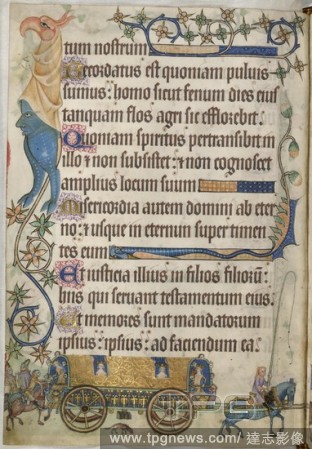 tum nostrum
Recordatus est quoniam puluis
sumus: homo sicut fenum dies eius
tanquam flos agri sic efflorebit.
Quoniam spiritus pertransibit in
illo ⁊ non subsistet: ⁊ non cognoscet
amplius locum suum
Misericordia autem domini ab eter
no: ⁊ usque in eternum super timen
tes eum
Et iusticia illius in filios filiorū:
hiis qui seruant testamentum eius.
Et memores sunt mandatorum
ipsius: ipsius: ad faciendum ea.
TPG
www.tpgnews.com/達志影像